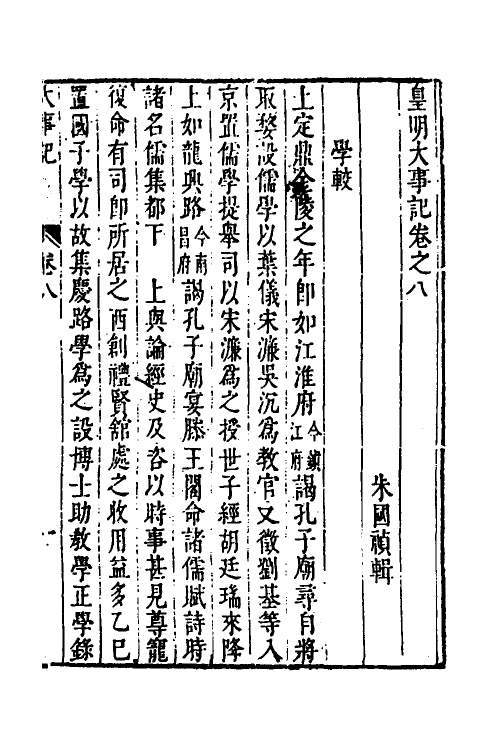 皇明大事記卷之八
朱國禎輯
學較
上定鼎金陵之年卽如江淮府今鎮江府謁孔子廟尋自將
取婺設儒學以葉儀宋濂吳沉爲教官又徵劉基等入
京置儒學提舉司以宋濂爲之授世子經胡廷瑞來降
上如龍興路今南昌府謁孔子廟宴滕王閣命諸儒賦詩時
諸名儒集都下　上與論經史及咨以時事甚見尊寵
復命有司卽所居之西創禮賢舘處之收用益多乙巳
置國子學以故集慶路學爲之設博士助教學正學錄
大事記　卷八